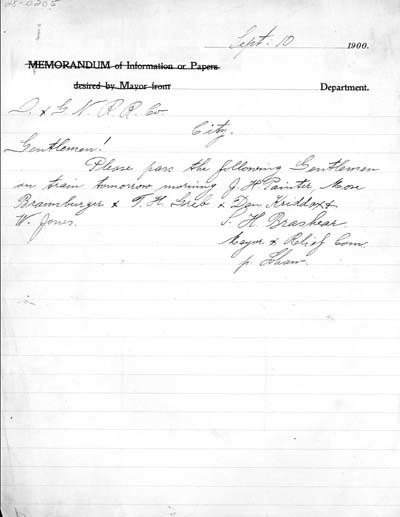 28-0205
Sept. 10 1900.
MEMORANDUM of Information or Papers
desired by Mayor from Department.
I. & G. N. R. R. Co
City.
Gentlemen!
Please pass the following Gentlemen
on train tomorrow morning J. H. Painter, Mose
Bramsburger & T. H. Greb & Dan &
W. Jones. S. H. Brashear.
Mayor & Relief Com.
p.